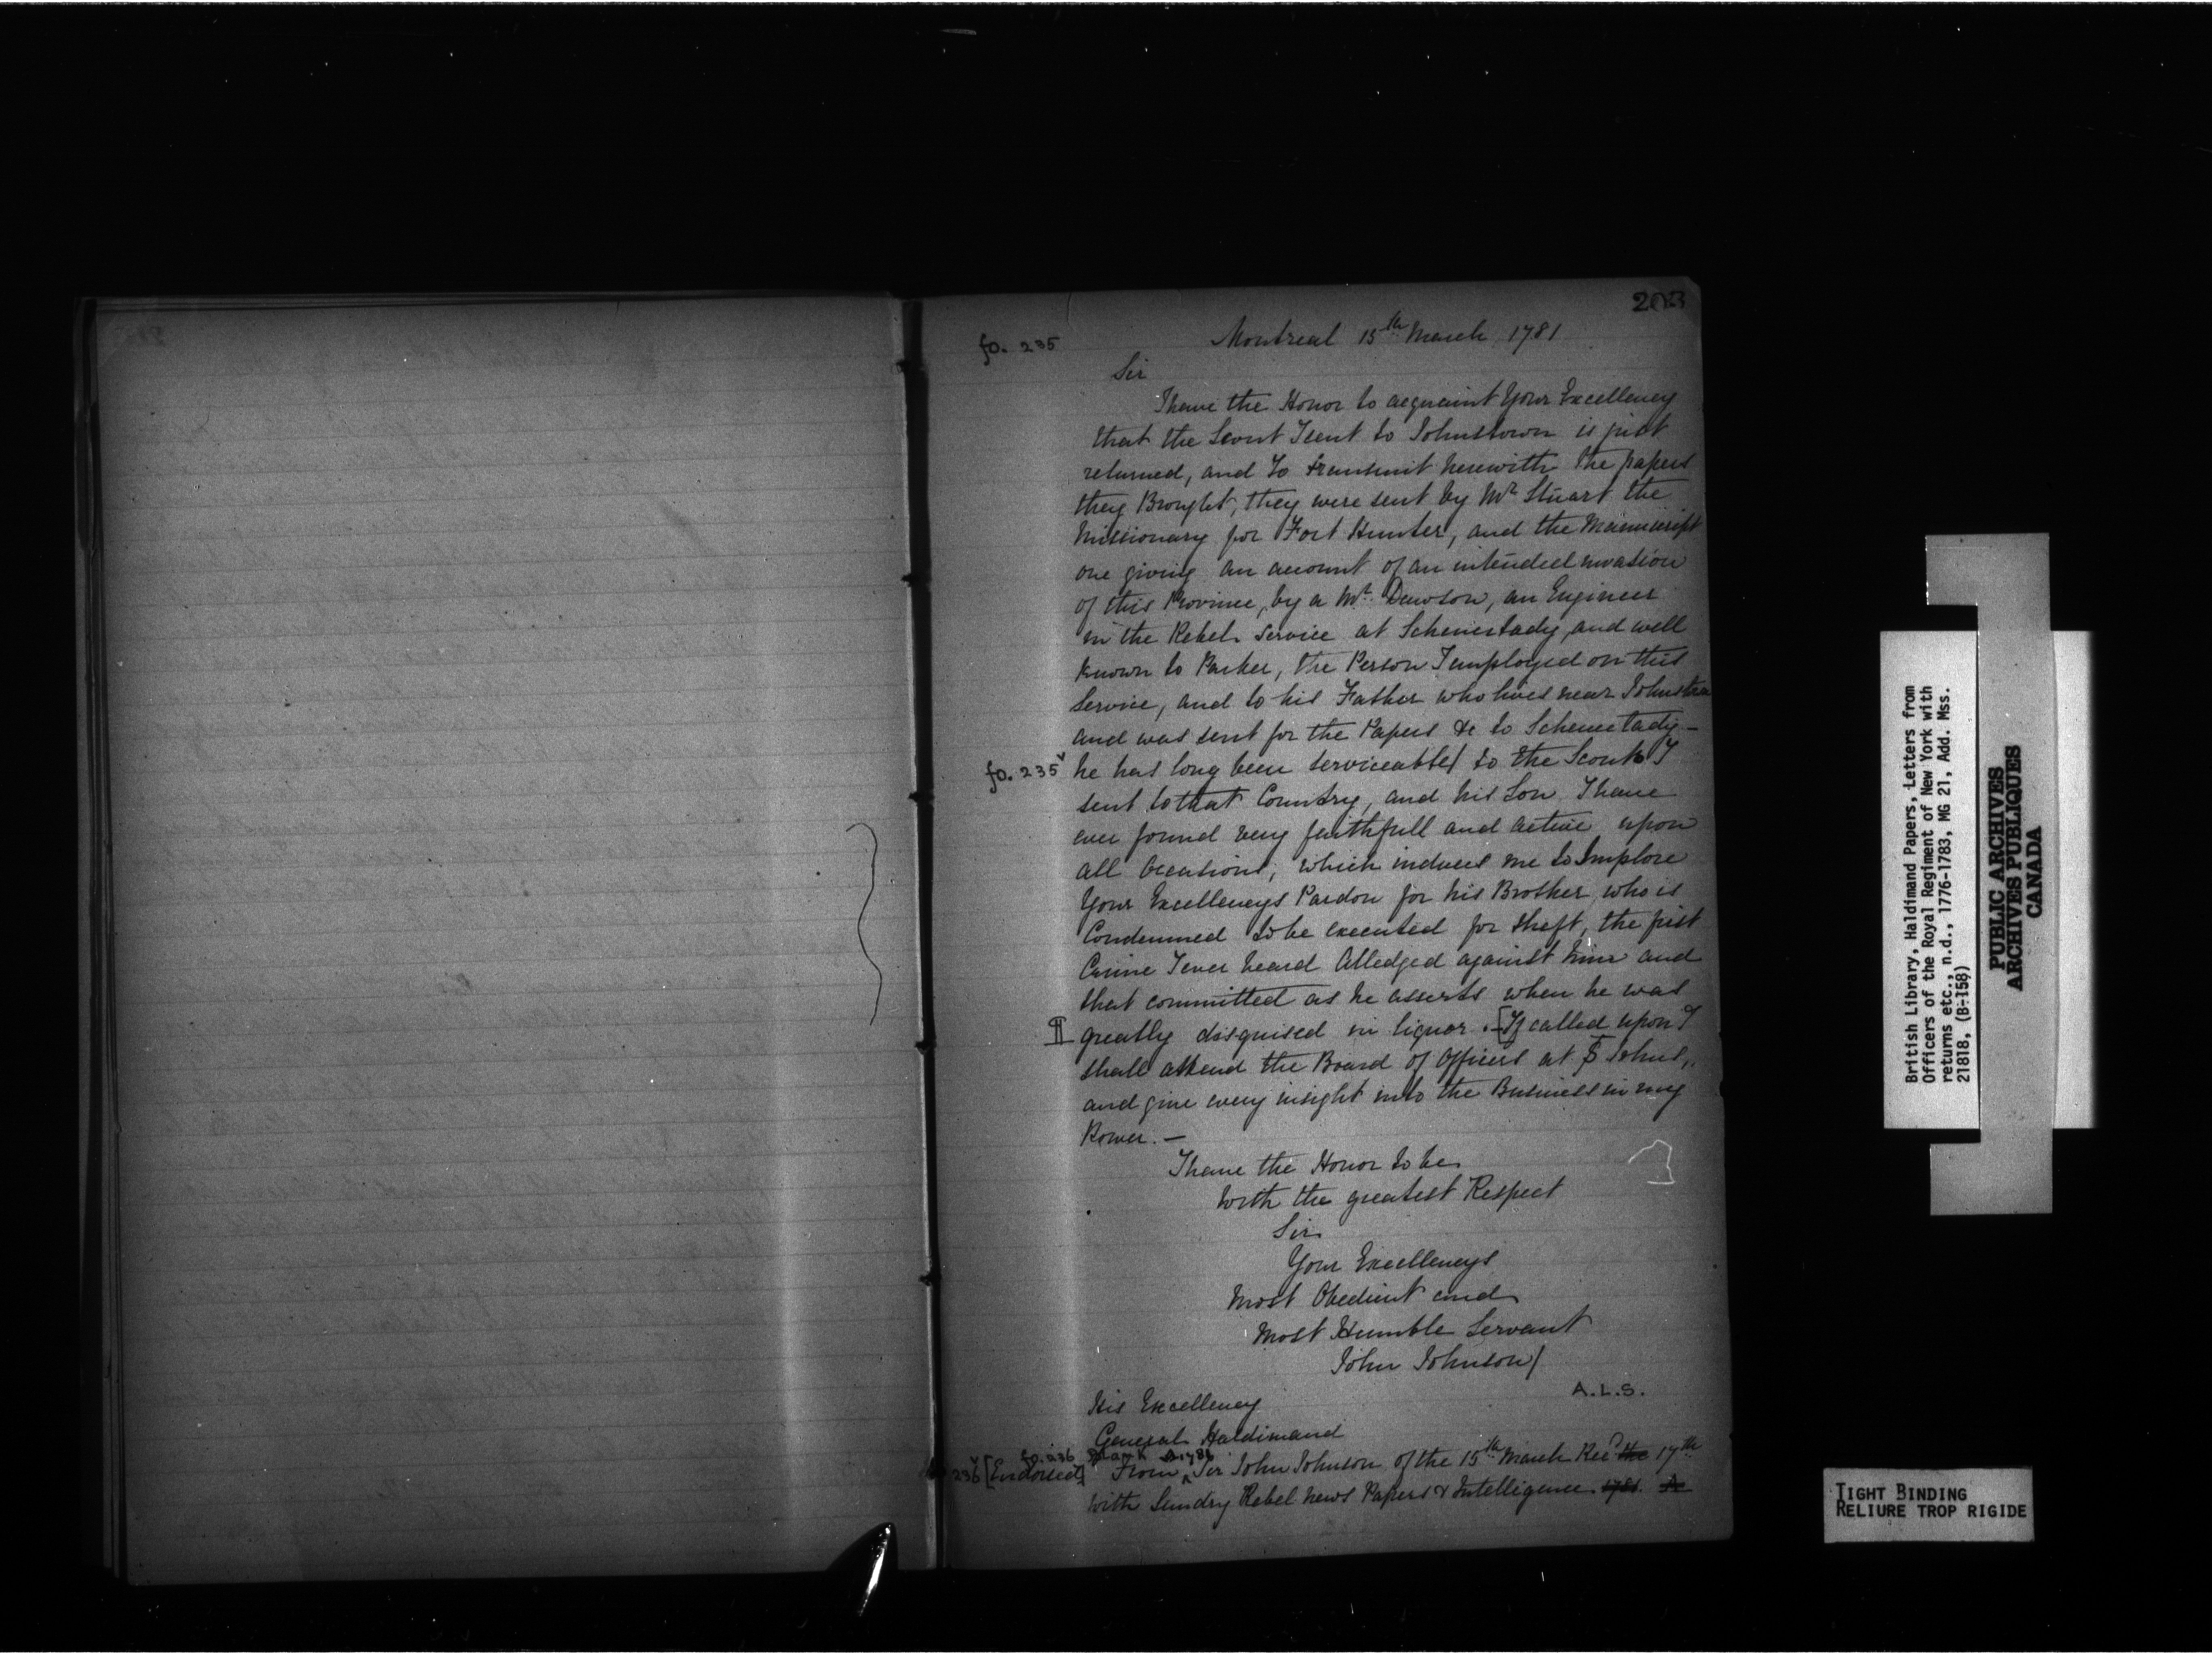 203
fo. 235
Montreal 15th March 1781
Sir
I have the Honor to acquaint Your Excellency
that the Scout I sent to Johnstown is just
returned, and to transmit herewith the papers
they Brought, they were sent by Mr Stuart the
Missionary for Fort Hunter, and the Manuscript
one giving an account of an intended invasion
of this Province, by a Mr. Dawson, an Engineer
in the Rebel Service at Schenectady, and well
known to Parker, the Person I employed on this
Service, and to his Father who lives near Johnstown
and was sent for the Papers &c to Schenectady –
fo. 235v
he has long been serviceable to the Scouts I
sent to that Country, and his Son I have
ever found very faithfull and active upon
all Occasions, which induces me to Implore
Your Excellencys Pardon for his Brother, who is
Condemned to be executed for theft, the first
Crime I ever heard Alledged against him and
that committed as he asserts when he was
greatly disguised in liquor. – [If called upon I
shall attend the Board of Officers at St Johns,
and give every insight into the Business in my
Power. –
I have the Honor to be
With the greatest Respect
Sir
Your Excellencys
Most Obedient and
Most Humble Servant
John Johnson
A.L.S.
His Excellency
General Haldimand
fo. 236 Blank A 1781
236v [Endorsed] From Sir John Johnson of the 15th March Recd the 17th
with Sundry Rebel News Papers & Intelligence. 1781. A
British Library, Haldimand Papers, Letters from
Officers of the Royal Regiment of New York with
returns etc., n.d., 1776-1783, MG 21, Add. Mss.
21818, (B-158)
PUBLIC ARCHIVES
ARCHIVES PUBLIQUES
CANADA
TIGHT BINDING
RELIURE TROP RIGIDE